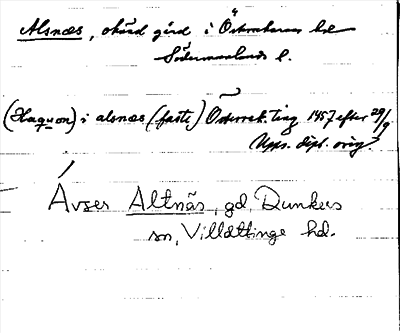 Alsnæs, okänd gård i Österrekarne hd
Södermanlands l.
(Haquon) i alsnæs (faste) Österrek. ting 1457 efter 29/9
Upps. dipl. orig.
Avser Altnäs, gd, Dunkers
sn, Villåttinge hd.